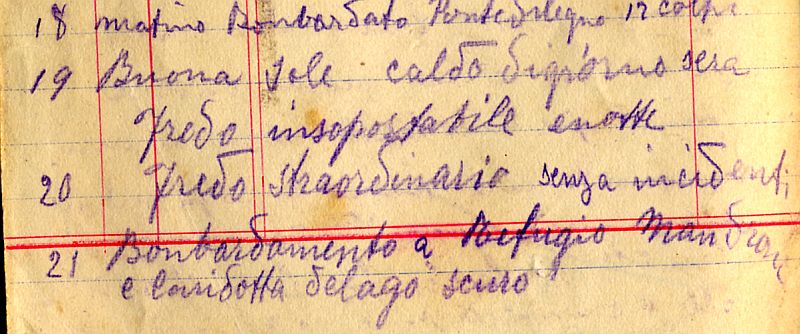 18 matino Bonbardato Pontedilegno 12 colpi
19 Buona Sole caldo digiorno sera
fredo insoportabile enotte
20 fredo straordinario senza incidenti
21 Bonbardamento a Refugio Mandron
e Caridotta delago scuro